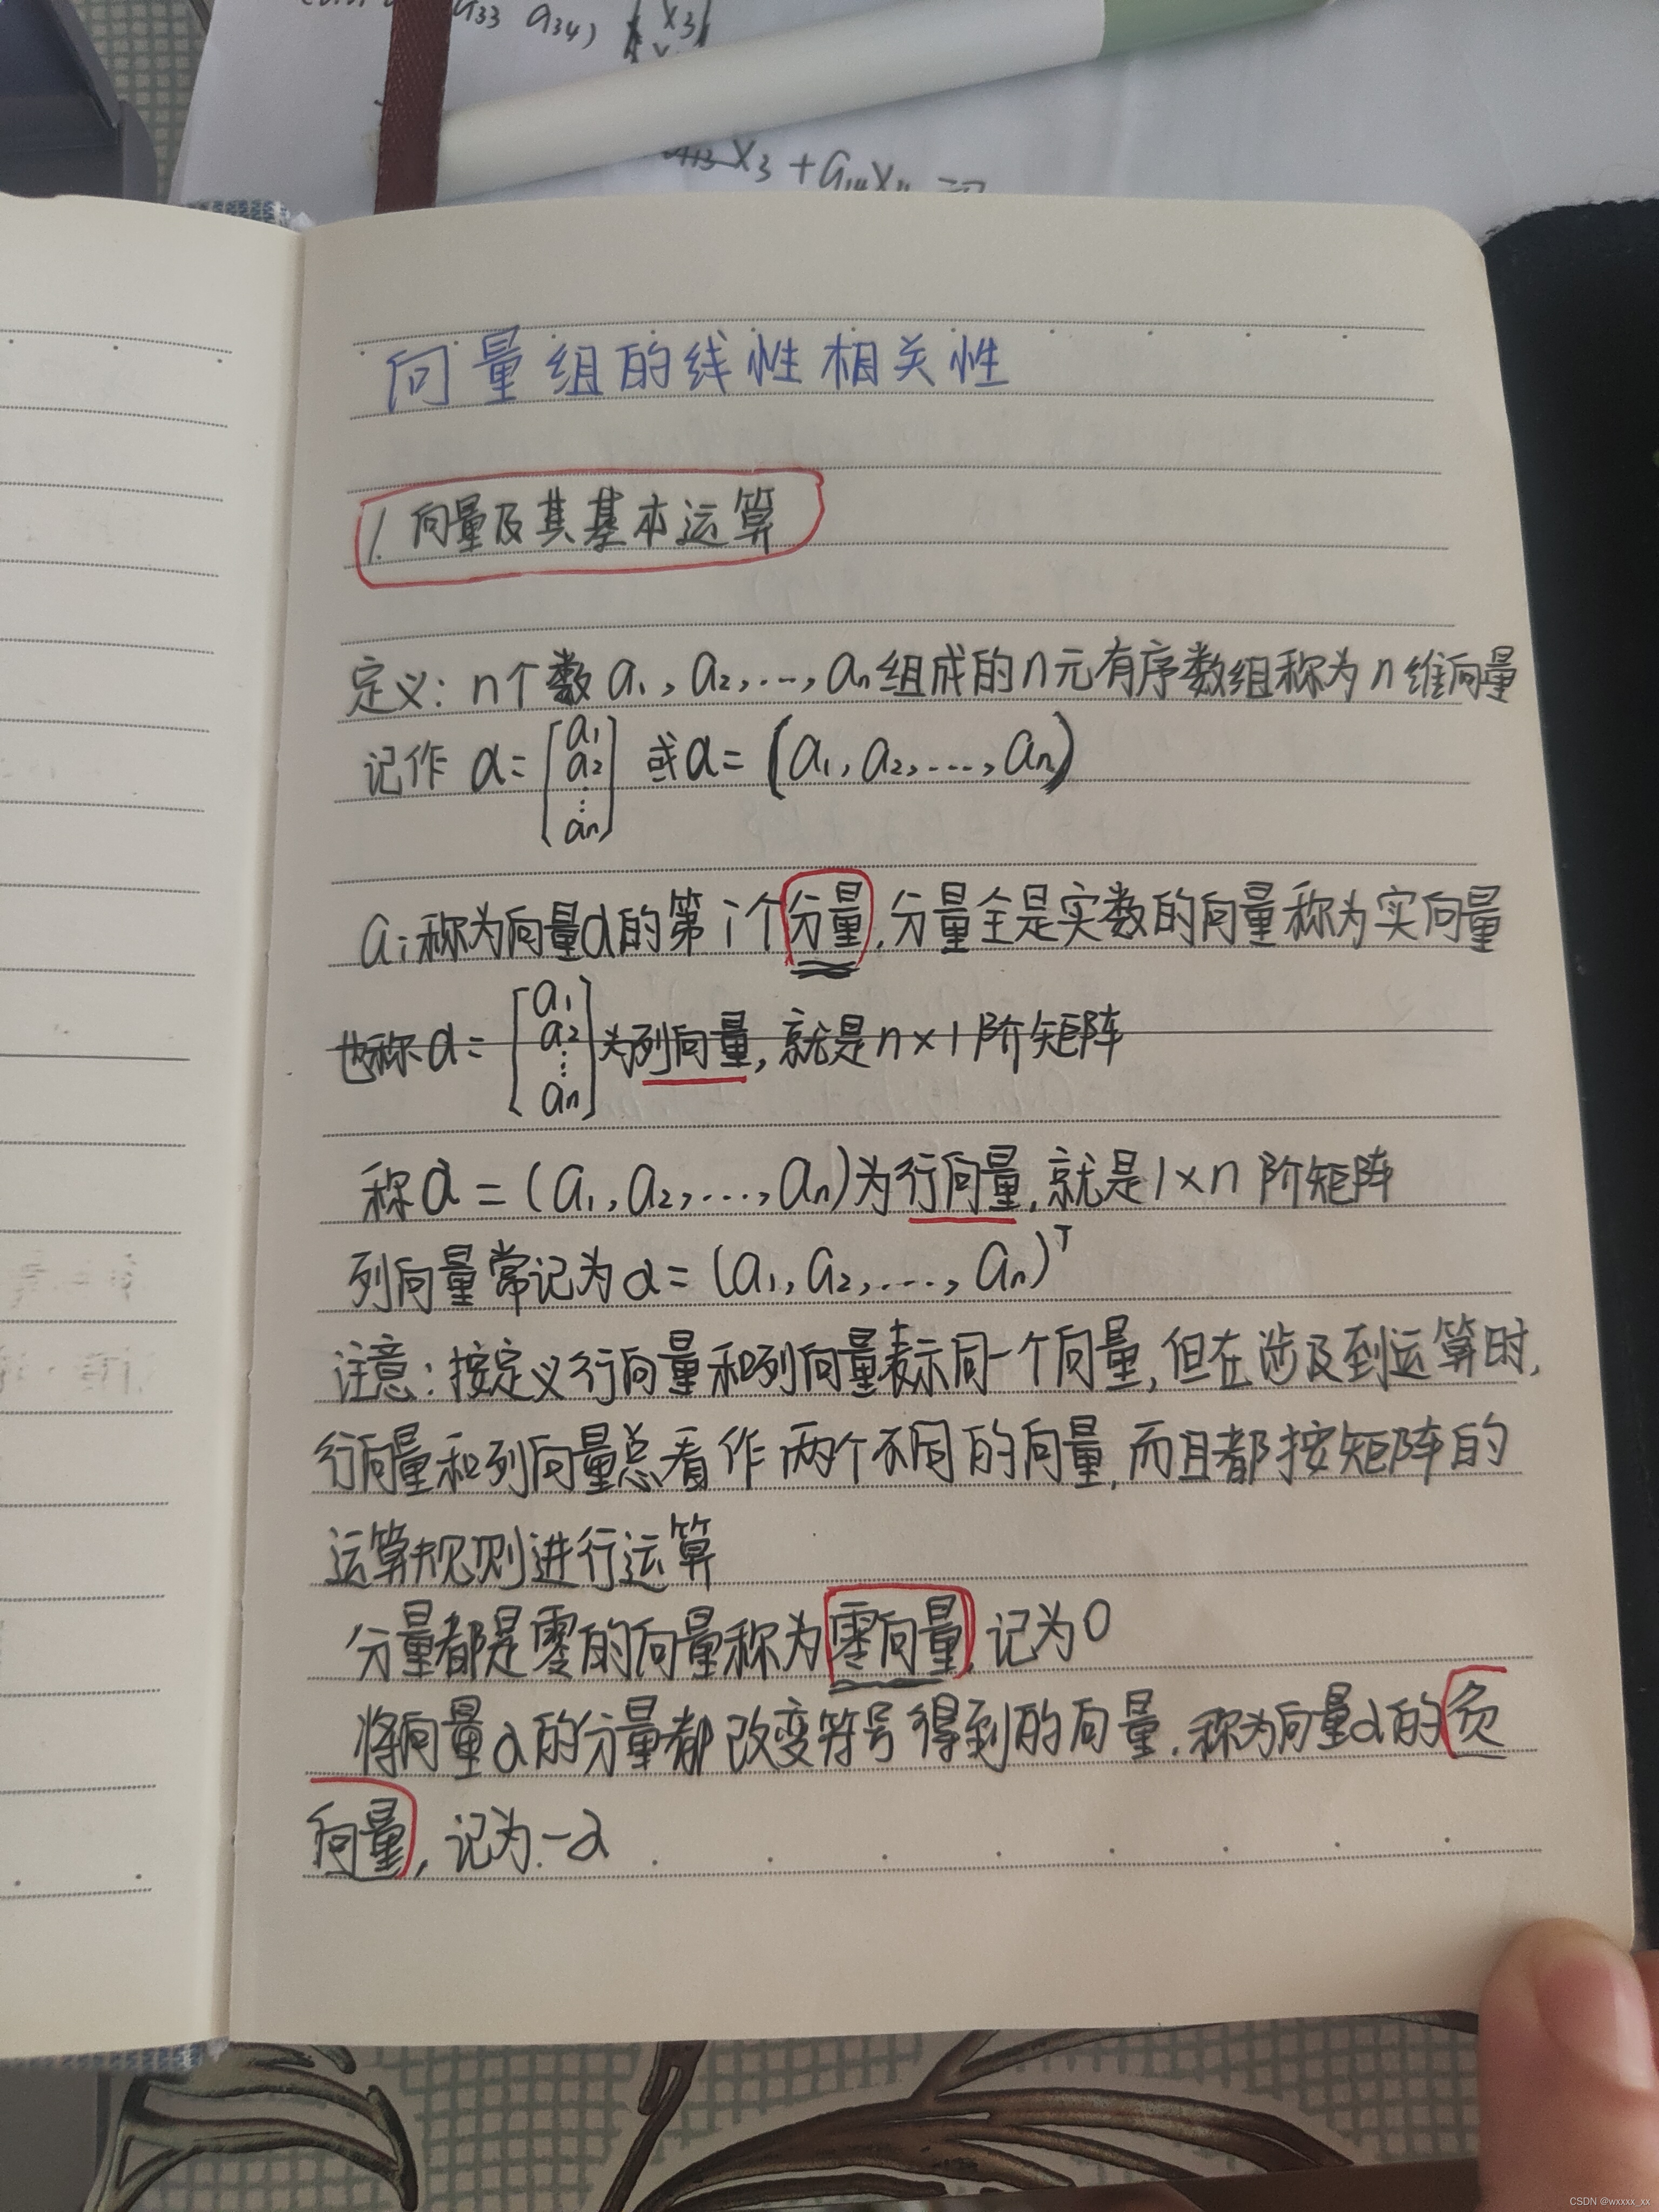 a33 a34) x3
x3 + a14x4 =
向量组的线性相关性
1. 向量及其基本运算
定义: n个数 a1, a2, ..., an 组成的n元有序数组称为n维向量
记作 α = [a1 a2 ⋮ an] 或α = (a1, a2, ..., an)
ai称为向量α的第i个分量, 分量全是实数的向量称为实向量
也称α = [a1 a2 ⋮ an] 为列向量, 就是n×1阶矩阵
称α = (a1, a2, ..., an)为行向量, 就是1×n阶矩阵
列向量常记为α = (a1, a2, ..., an)^T
注意: 按定义行向量和列向量表示同一个向量, 但在涉及到运算时,
行向量和列向量总看作两个不同的向量, 而且都按矩阵的
运算规则进行运算
分量都是零的向量称为零向量, 记为0
将向量α的分量都改变符号得到的向量, 称为向量α的负
向量, 记为-α
CSDN @wxxxx_xx